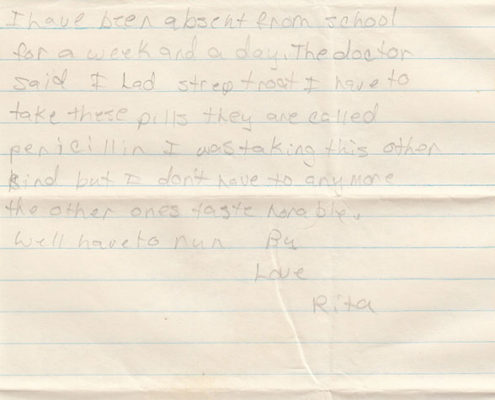 I have been absent from school
for a week and a day. The doctor
said I had strep troat I have to
take these pills they are called
penicillin I was taking this other
kind but I don't have to anymore
the other ones taste horable.
Well have to run By
Love
Rita